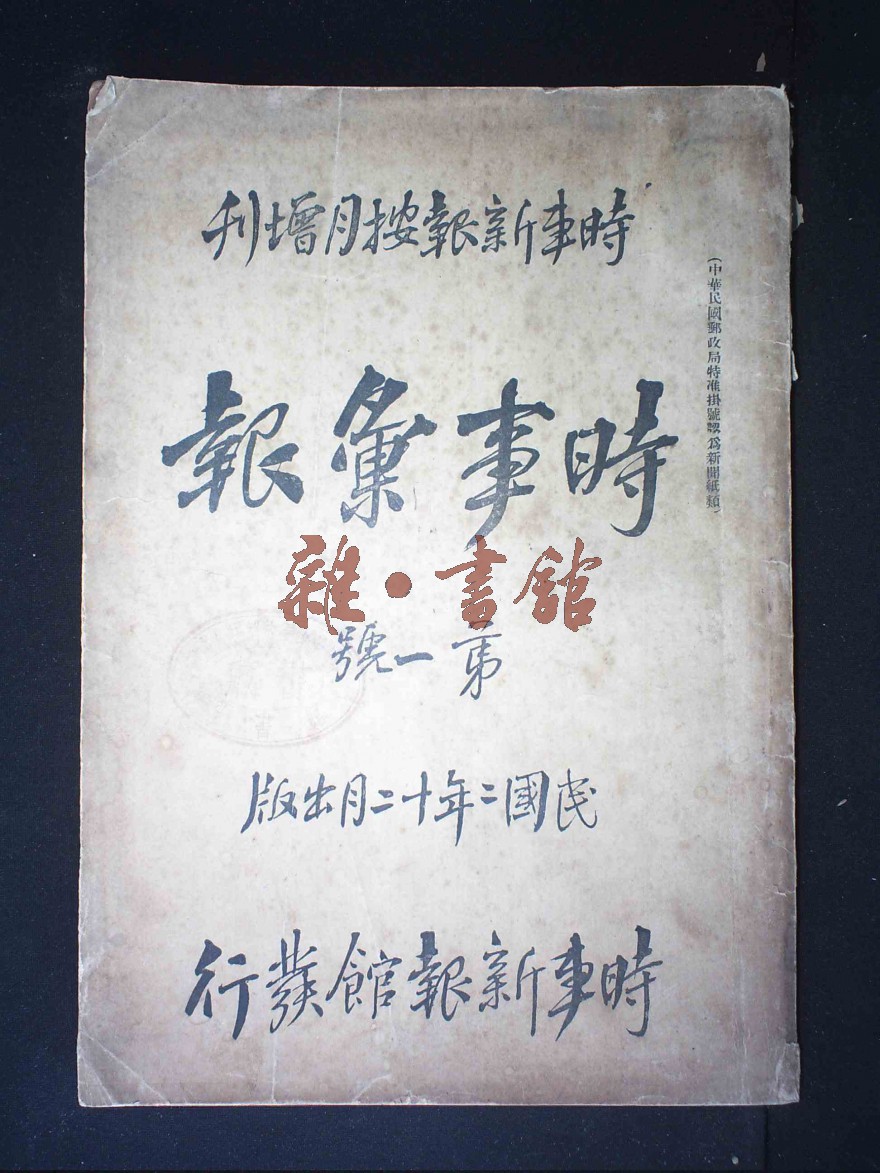 時事新報按月增刊
（中華民國郵政局特准掛號認為新聞紙類）
時事彙報
雜·書館
第一號
民國二年十二月出版
時事新報館發行